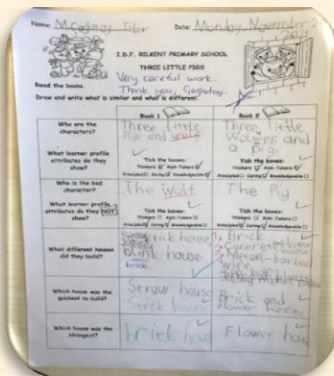 Name: Date: Monday, November 2
I.D.F. BILKENT PRIMARY SCHOOL
THREE LITTLE PIGS
Very careful work.
Thank you,
Read the books.
Draw and write what is similar and what is different.
Book 1
Book 2
Who are the characters?
Three Little Pig and wolf
Three little Wolves and a pig
What learner profile attributes do they show?
Tick the boxes:
Thinkers Risk-Takers
Principled Caring Knowledgeable
Tick the boxes:
Thinkers Risk-Takers
Principled Caring Knowledgeable
Who is the bad character?
The wolf
The Pig
What learner profile attributes do they NOT show?
Tick the boxes:
Thinkers Risk-Takers
Principled Caring Knowledgeable
Tick the boxes:
Thinkers Risk-Takers
Principled Caring Knowledgeable
What different houses did they build?
house
house
brick
Brick
Flower
wire
Which house was the quickest to build?
Straw house
Stick
Brick and flower houses
Which house was the strongest?
brick hou
Flower hou